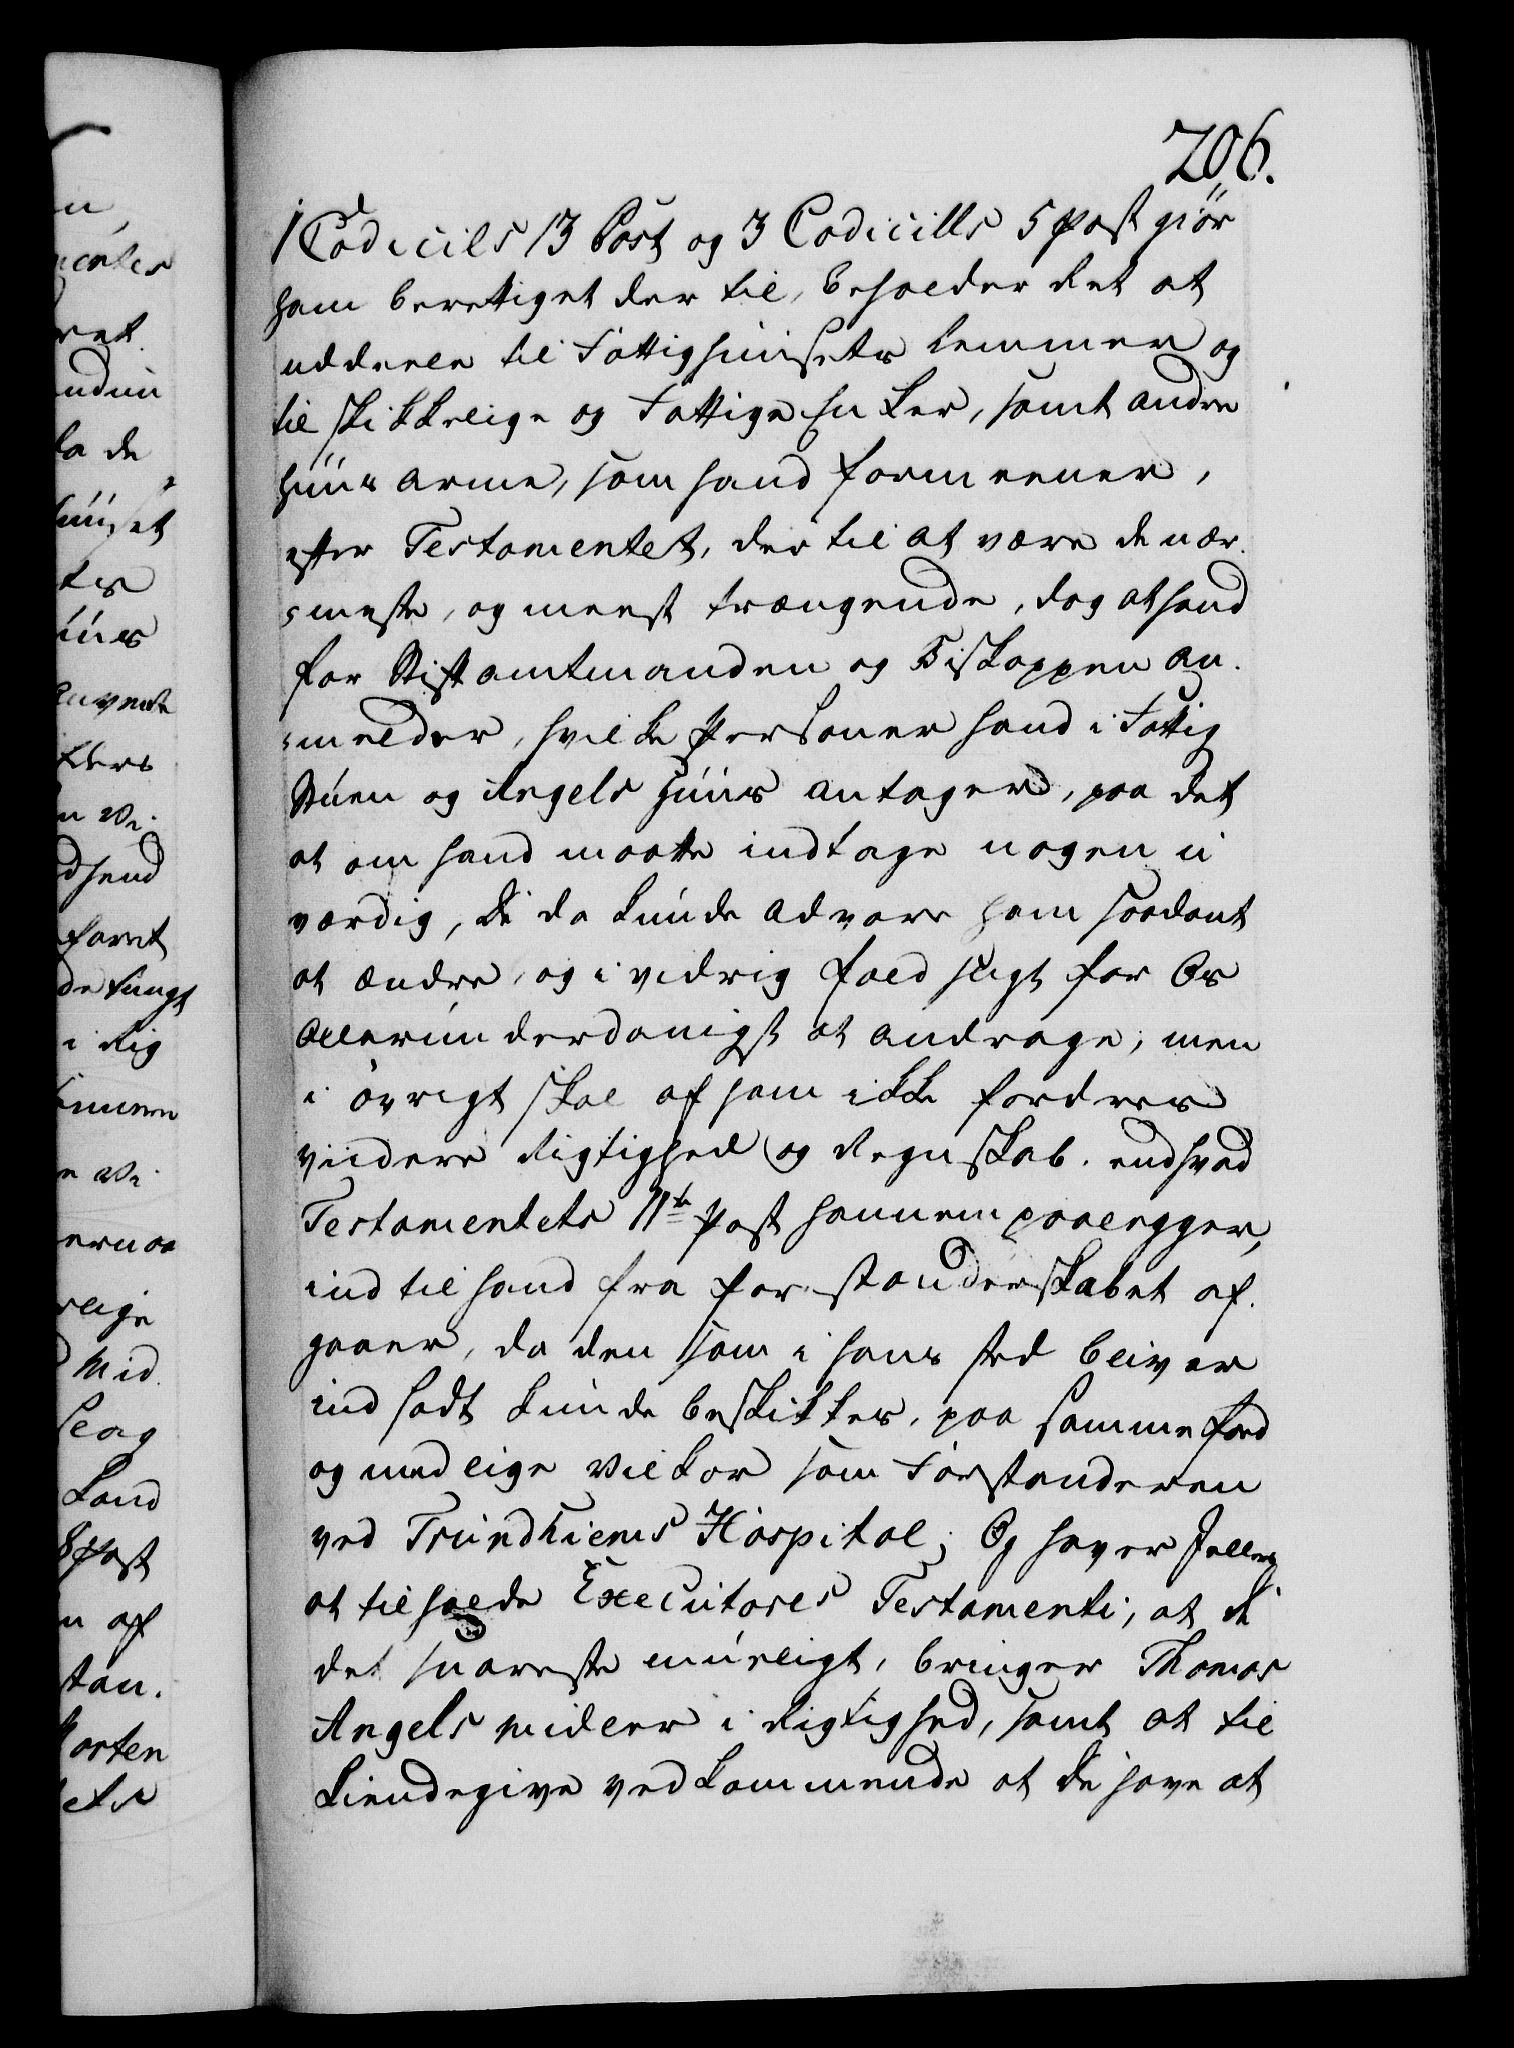 206.
1 Codicils 13 Post og 3 Codicills 5 Post giör
ham berettiget der til, beholder det at
uddeele til Fattighuusets Lemmer og
til skikkelige og Fattige Enker, samt andre
Huus arme, som hand formeener,
efter Testamentet, der til at være de nær-
-meste, og meest trængende, dog at hand
for Stiftamtmanden og Biskoppen an-
-melder, hvilke Personer hand i Fattig
Stuen og Angels Huus antager, paa det
at om hand maatte indtage nogen u
værdig, de da kunde advare ham saadant
at ændre, og i vidrig fald sligt for Os
allerunderdanigst at andrage; men
i øvrigt skal af ham ikke fordres
viidere Rigtighed og Regnskab, end hvad
Testamentets 11te Post hannem paalegger,
indtil hand fra forstanderskabet af-
gaaer, da den som i hans sted bliver
indsadt kunde beskikkes, paa samme fod
og med lige Vilkor som Forstanderen
ved Trundhiems Hospital; Og haver I ellers
at tilholde Executores Testamenti, at de
det snareste mueligt, bringer Thomas
Angels Midler i Rigtighed, samt at til
kiendegive vedkommende at de have at